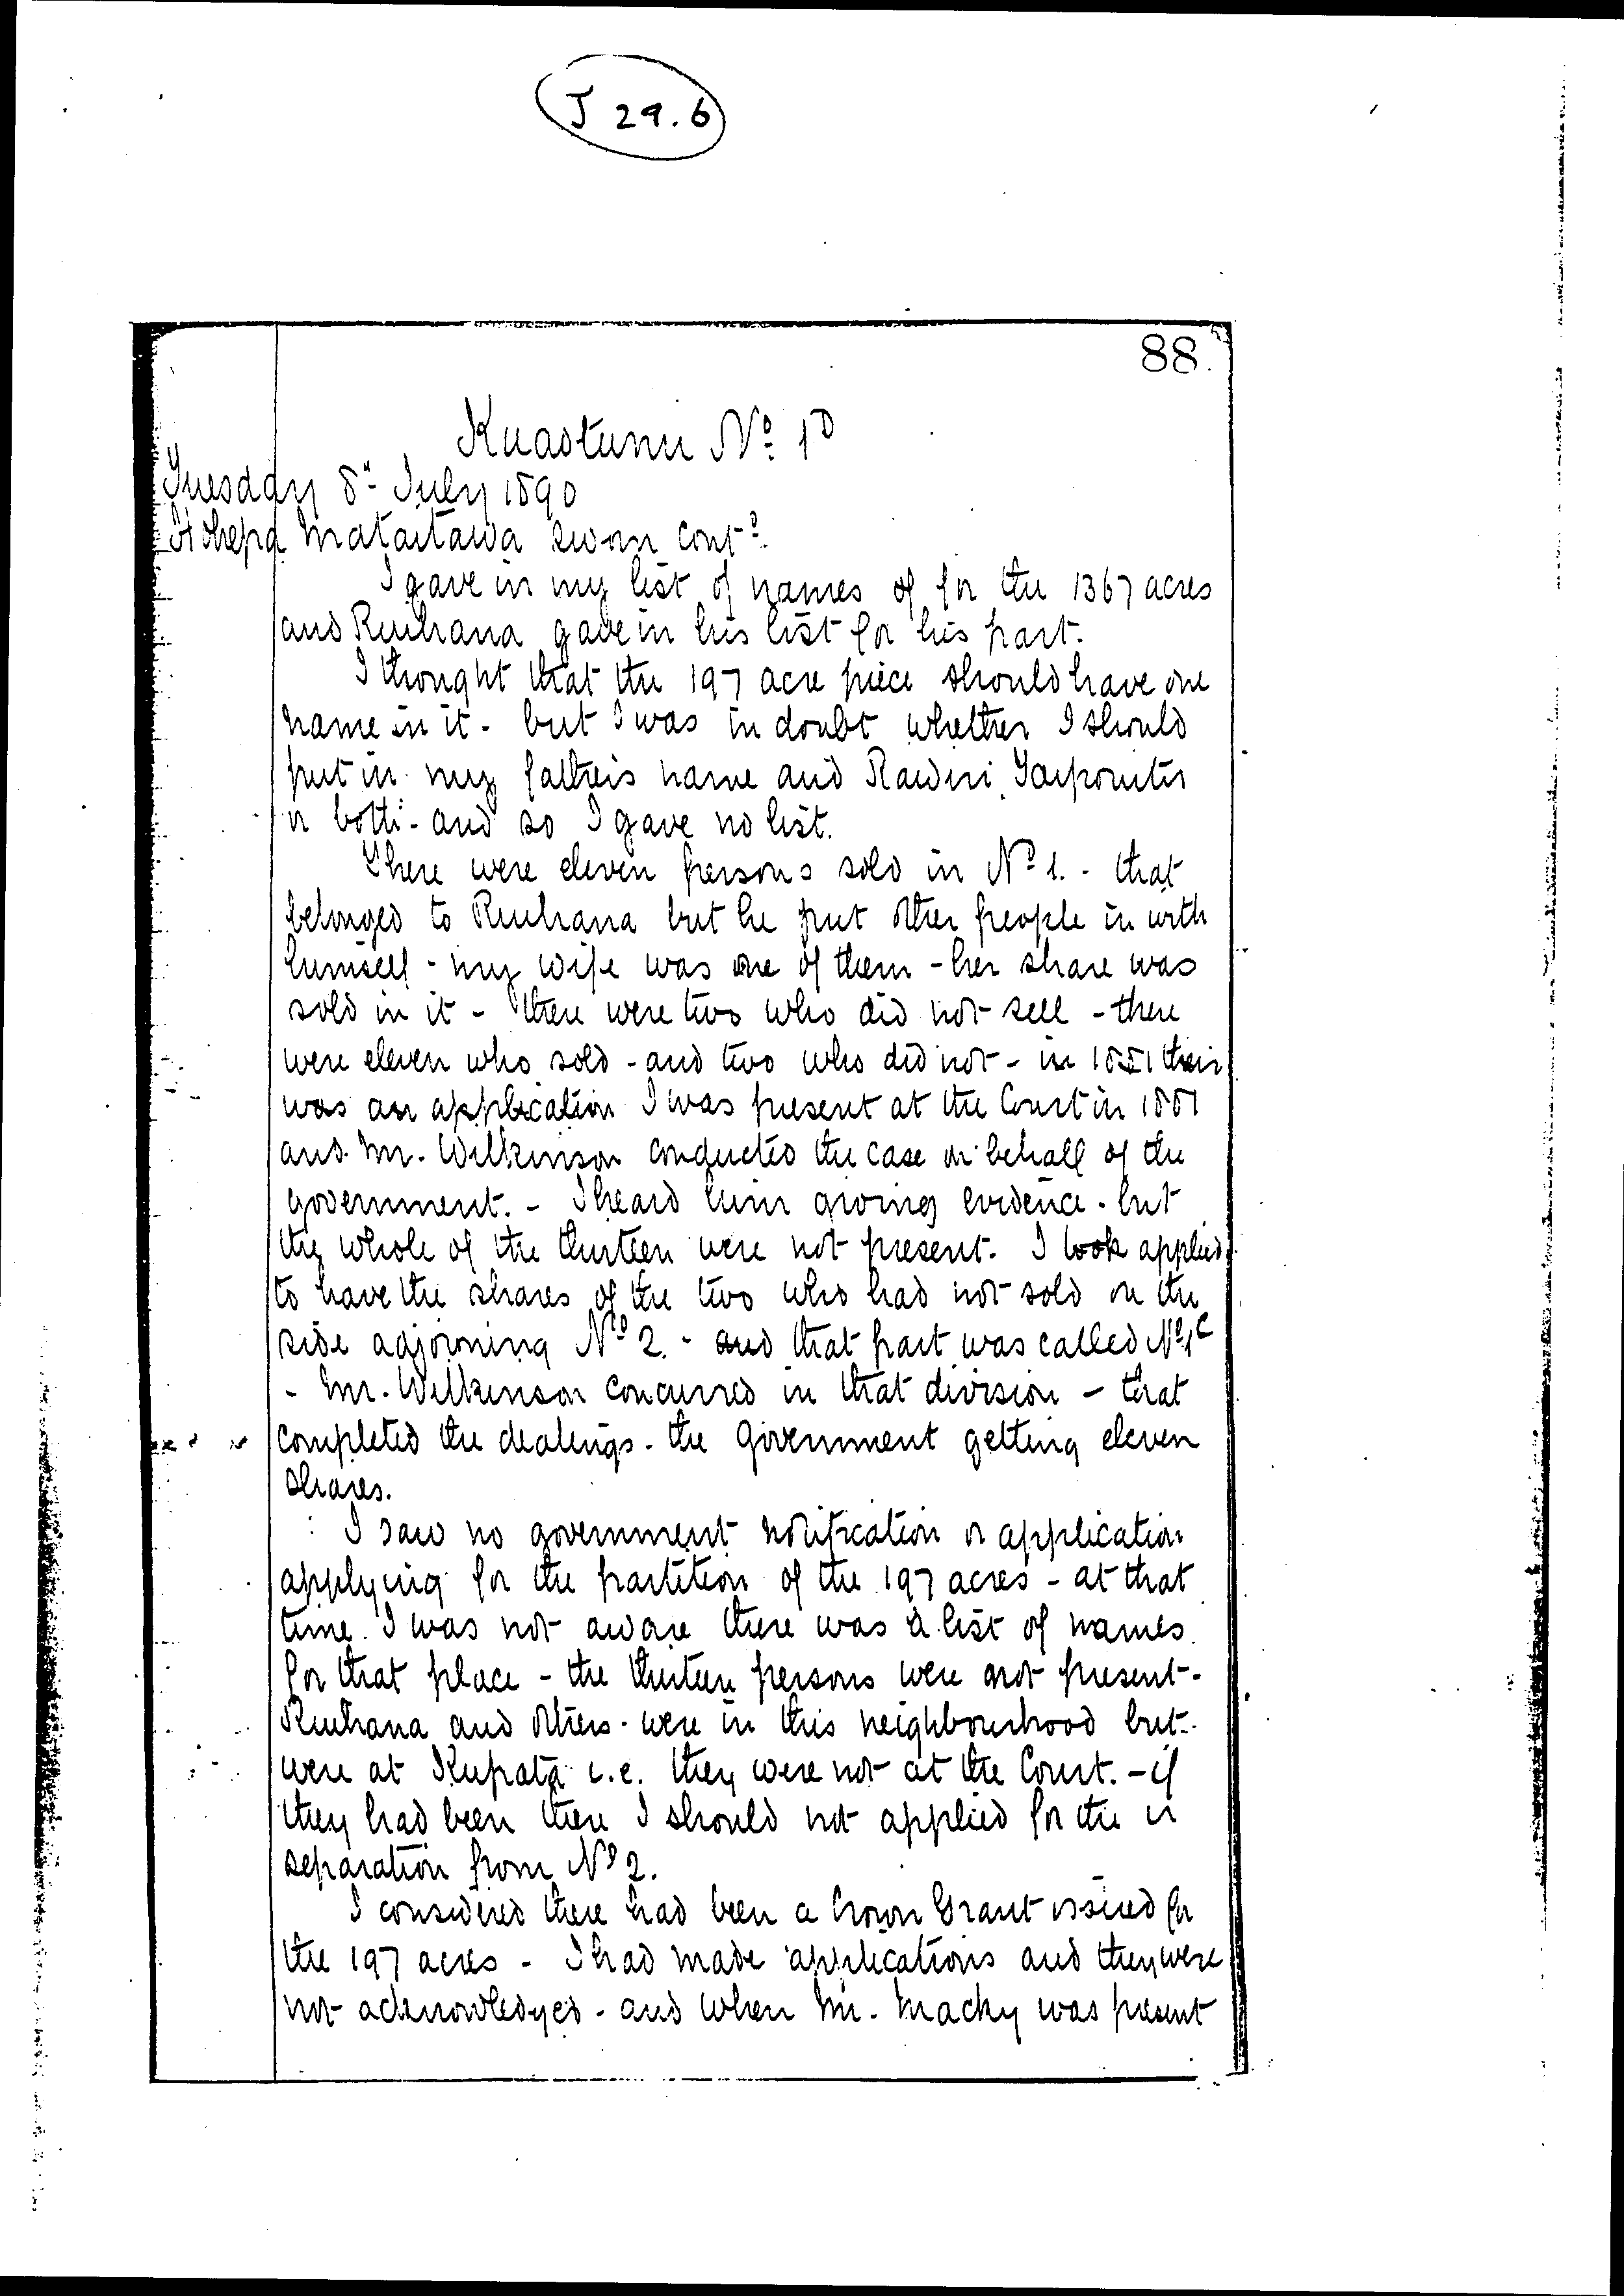 J 29.6
88.
Kuaotunu No. 1D
Tuesday 8th July 1890
Hohepa Mataitawa sworn contd.
I gave in my list of names of for the 1367 acres
and Reihana gave in his list for his part.
I thought that the 197 acre piece should have one
name in it - but I was in doubt whether I should
put in my father's name and Rawiri
or both - and so I gave no list.
There were eleven persons sold in No 1. - that
belonged to Reihana but he put other people in with
himself - my wife was one of them - her share was
sold in it - there were two who did not sell - there
were eleven who sold - and two who did not - in 1881 their
was an application I was present at the Court in 1881
and Mr. Wilkinson conducted the case on behalf of the
government. - I heard him giving evidence - but
the whole of the thirteen were not present. I took applied
to have the shares of the two who had not sold on the
side adjoining No 2. - and that part was called No 1C
- Mr. Wilkinson concurred in that division - that
completed the dealings - the Government getting eleven
shares.
I saw no government notification or application
applying for the partition of the 197 acres - at that
time. I was not aware there was a list of names
for that place - the thirteen persons were not present -
Reihana and others - were in this neighbourhood but
were at Kupata i.e. they were not at the Court. - if
they had been there I should not applied for the
separation from No 2.
I considered there had been a Crown Grant issued for
the 197 acres - I had made applications and they were
not acknowledged - and when Mr. Macky was present